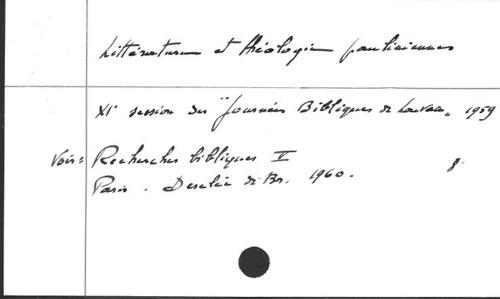 Littérature et théologie pauliniennes
XIe session des "Journées Bibliques de Louvain" 1959
Voir: Recherches bibliques V 8.
Paris. Desclée de Br. 1960.